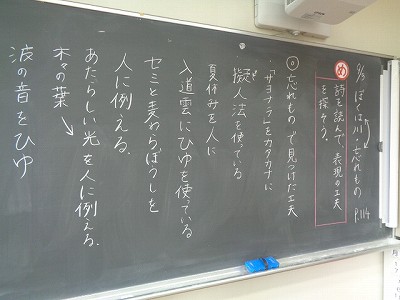 9/3 ぼくは川 忘れもの
P.114
め 詩を読んで、表現の工夫
を探そう。
◎「忘れもの」で見つけた工夫
・「サヨナラ」をカタカナに
擬人法を使っている
ぎ
夏休みを人に
入道雲にひゆを使っている
セミと麦わらぼうしを
人に例える。
あたらしい光を人に例える。
木々の葉→
波の音をひゆ